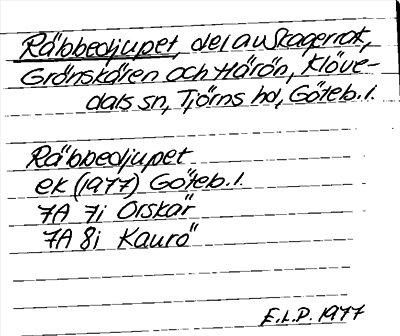 Räbbedjupet, del av Skagerrak,
Grönskären och Härön, Klöve-
dals sn, Tjörns hd, Göteb. l.
Räbbedjupet
ek (1977) Göteb. l.
7A 7i Orskär
7A 8i Kaurö
E.L.P. 1977